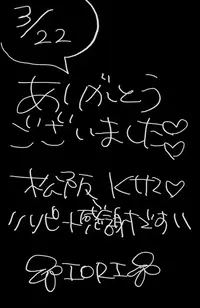 3/22
ありがとう
ございました♡♡
松阪 K様♡
〃リピート感謝です〃
IORI